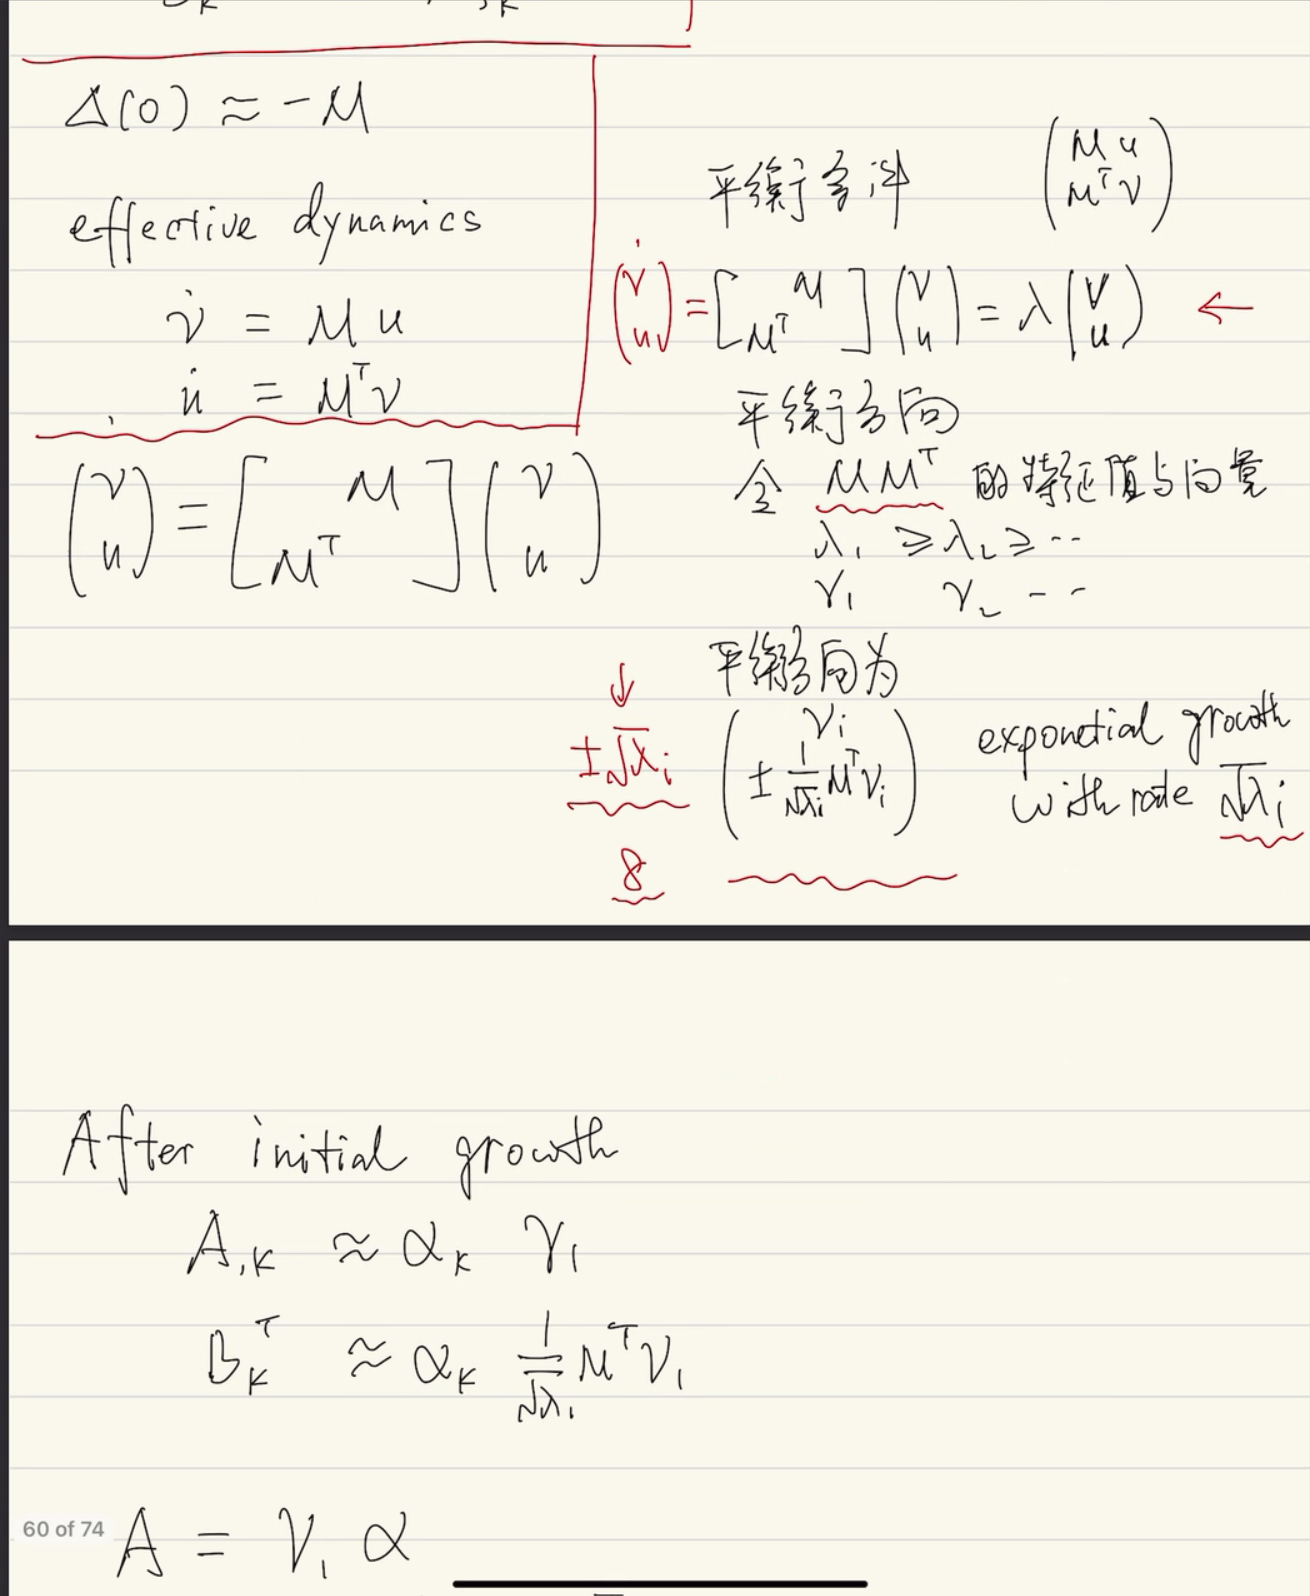 Δ(0) ≈ -M
effective dynamics
v̇ = M u
u̇ = Mᵀv
(v u)˙ = [M Mᵀ] (v u)
平衡条件 (M u Mᵀv)
(v u)˙ = [M Mᵀ] (v u) = λ (v u) ←
平衡方向
令 MMᵀ 的特征值与向量
λ₁ ≥ λ₂ ≥ ...
v₁ v₂ ...
平衡方向为
↓
±√λᵢ (vᵢ ± 1/√λᵢ Mᵀvᵢ) exponetial growth
with rate √λᵢ
8
After initial growth
A,ₖ ≈ αₖ v₁
Bₖᵀ ≈ αₖ 1/√λ₁ Mᵀv₁
A = v₁ α
60 of 74